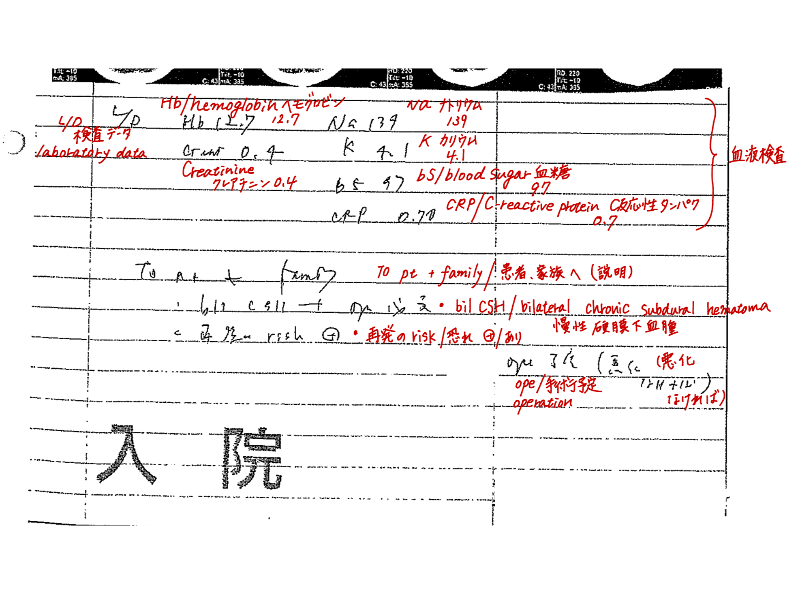 Hb/hemoglobin ヘモグロビン Na ナトリウム
L/D L/D Hb 12.7 12.7 Na 139 139
検査データ K カリウム
laboratory data 0.4 K 4.1 4.1 血液検査
Creatinine
クレアチニン 0.4 bs 97 bS/blood sugar 血糖
97
CRP 0.70 CRP/C-reactive protein C反応性タンパク
0.7
To pt + family To pt + family/患者、家族へ (説明)
・bil CSH → ope ・bil CSH/bilateral chronic subdural hematoma
慢性硬膜下血腫
再発の risk ⊕ ・再発のrisk/恐れ ⊕/あり
ope 予定 (悪化 (悪化
ope/手術予定 なければ) なければ)
operation
入院